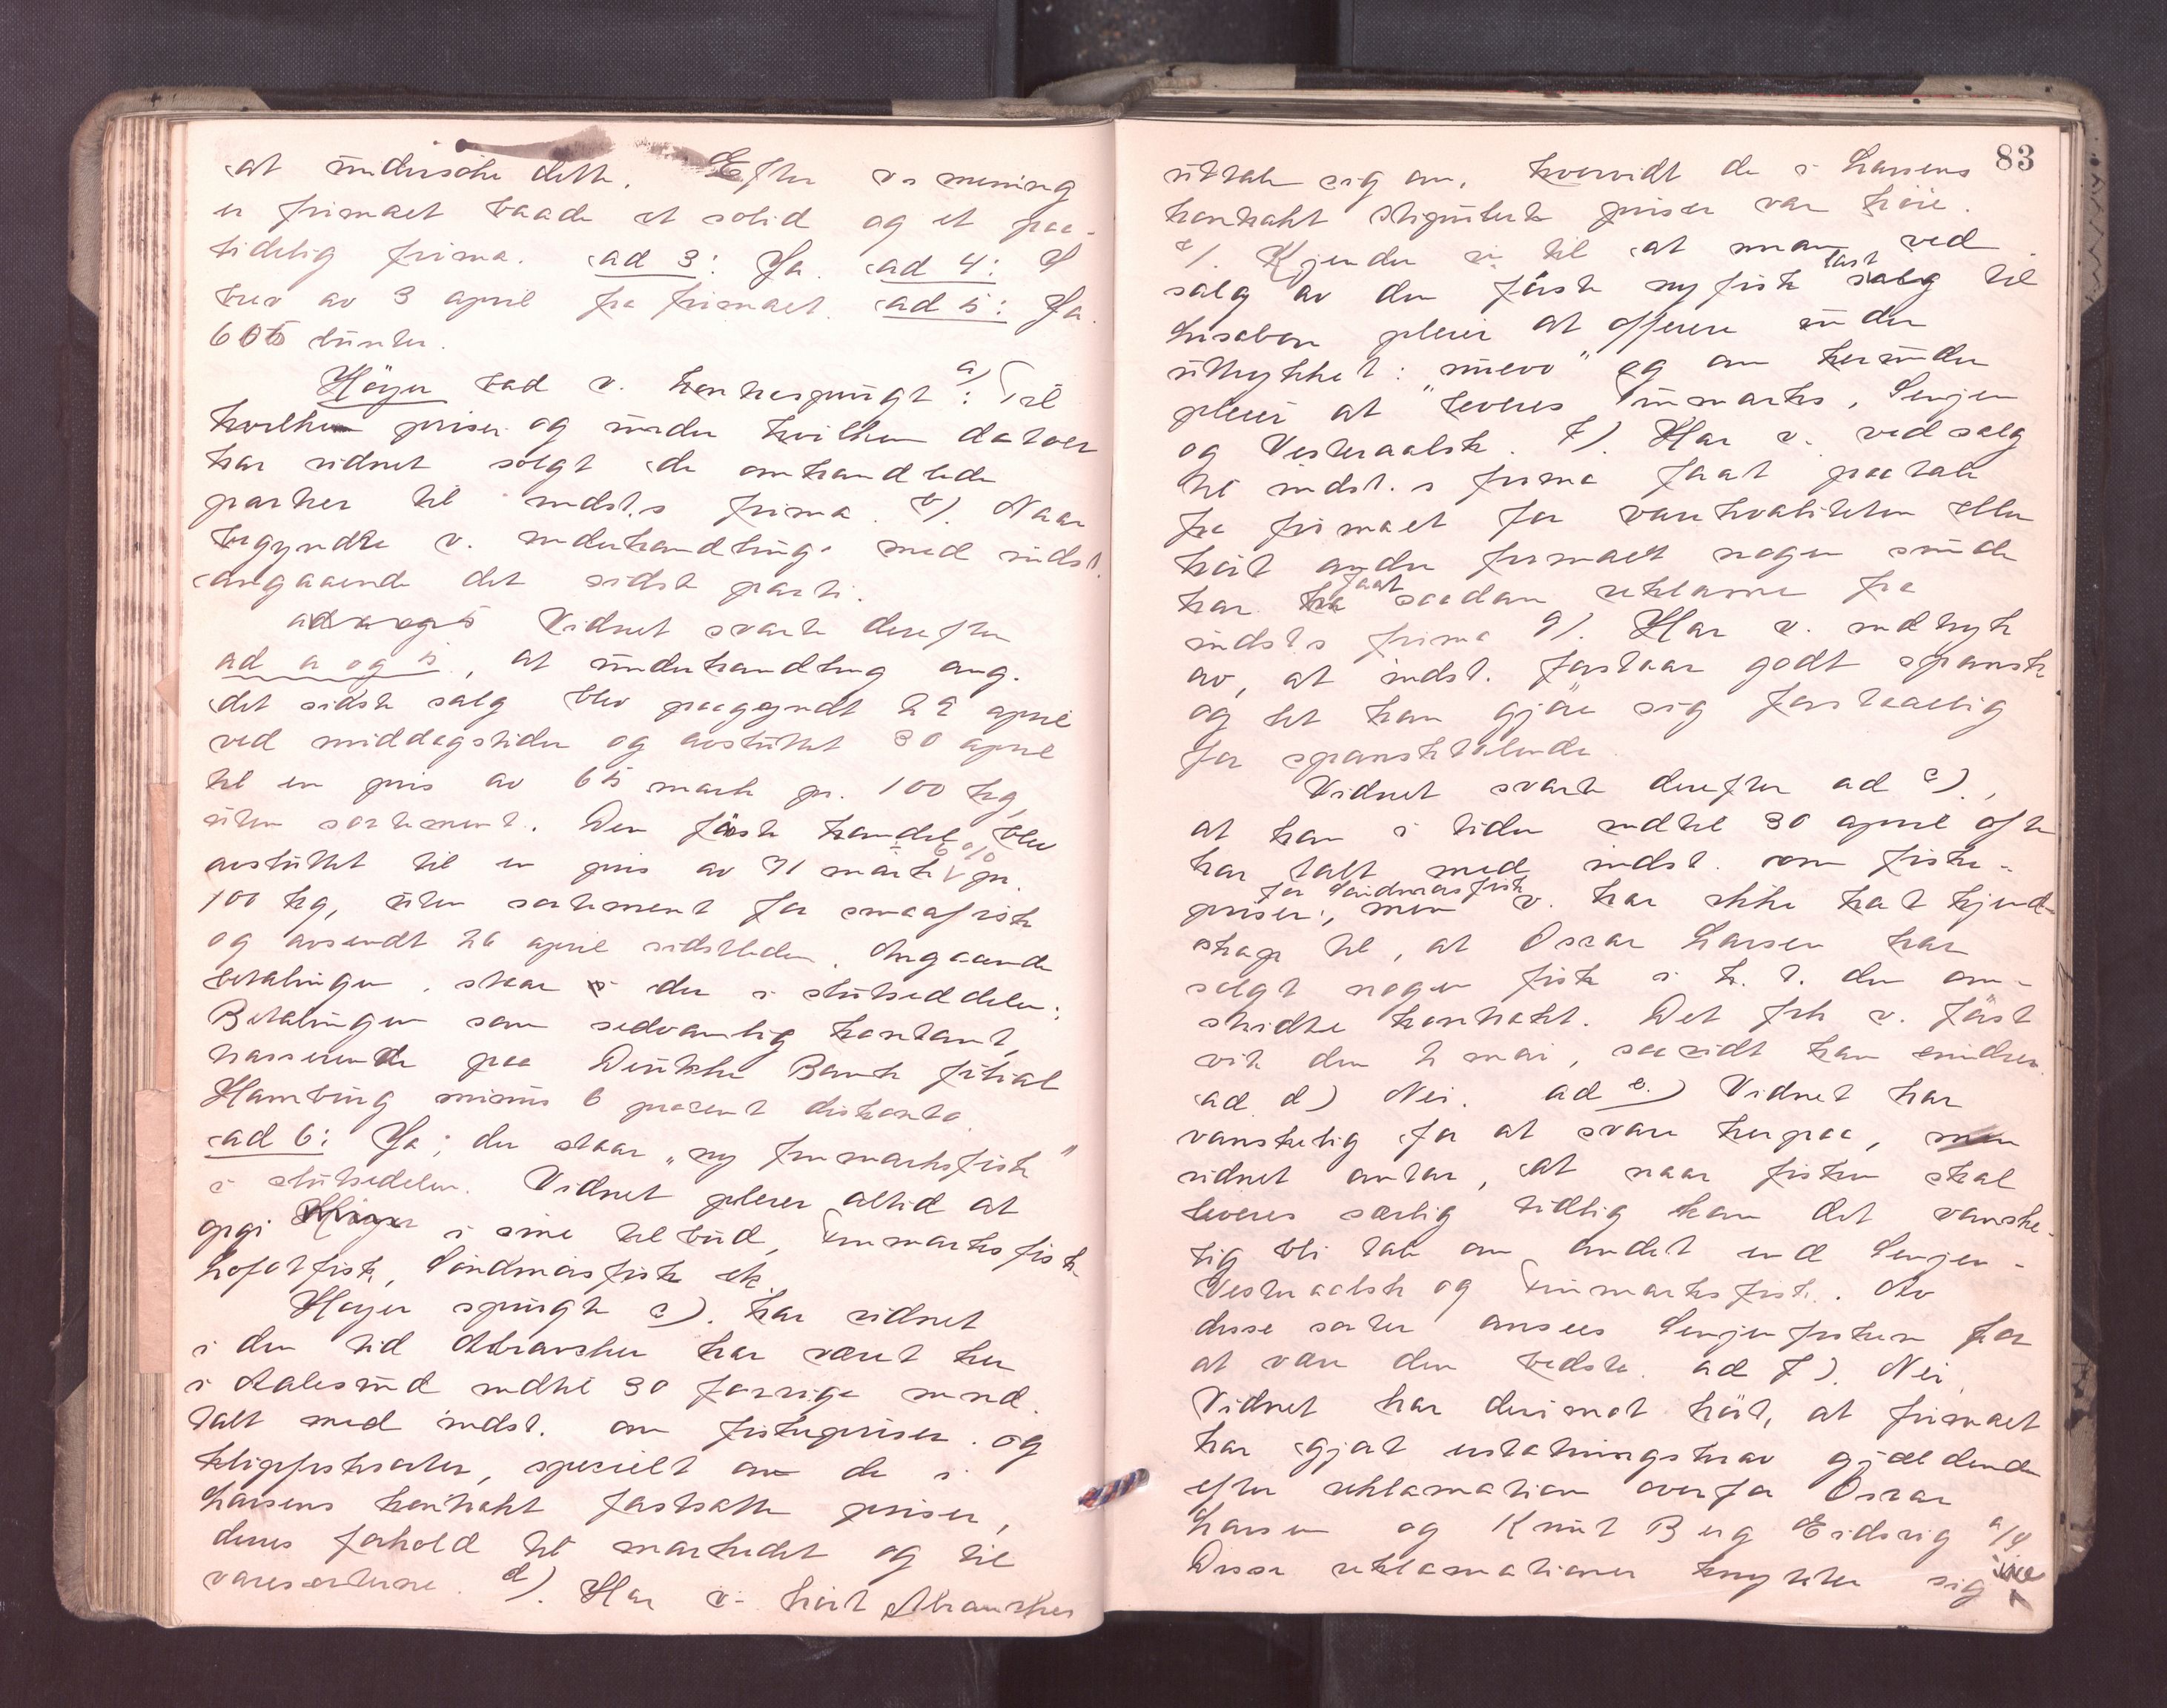 at undersøke dette. Efter v.s mening
er firmaet baade et solid og et paa-
lidelig firma. ad 3: Ja. ad 4: I
brev av 3 april fra firmaet. ad 5: Ja.
600 bunter.
Höyer bad v. kontraspurgt: a) Til
hvilken priser og under hvilken datoer
har vidnet solgt de omhandlede
partier til indst.s firma. b). Naar
begyndte v. underhandling med indst.
angaaende det sidste parti.
ad a og b Vidnet svarte derefter
ad a og b, at underhandling ang.
det sidste salg blev paagyndt 29 april
ved middagstider og avsluttet 30 april
til en pris av 65 mark pr. 100 kg,
uten sortement. Den første handel blev
avsluttet til en pris av 71 mark 6 % pr.
100 kg, uten sortement for smaafisk
og avsendt 26 april sidstleden. Angaaende
betalingen, staar der i slutseddelen:
Betalingen som sedvanlig kontant,
trasserende paa Deutsche Bank filial
Hamburg minus 6 procent diskonto.
ad 6: Ja; der staar „ny finmarksfisk"
i slutsedelen. Vidnet pleier altid at
opgi i sine tilbud, Finmarksfisk
Lofotfisk, Söndmörsfisk etc.
Høyer spurgte c). har vidnet
i den tid Abransher har været her
i Aalesund indtil 30 forrige mnd.
talt med indst. om fiskepriser og
klipfisksorter, specielt om de i
Larsens kontrakt fastsatte priser,
deres forhold til markedet og til
varesorterne. d). Har v. hört Abranshes
83
uttale sig om, hvorvidt de i Larsens
kontrakt stipulerte priser var höie.
e). Kjender v. til at man ved
salg av den første nyfisk last salg til
Lissabon pleier at offerere under
uttrykket: „nuevo" og om herunder
pleier at leveres Finmarks, Senjen
og Vesteraalsk. f). Har v. ved salg
til indst.s firma faat paatale
fra firmaet for varekvaliteten eller
hört andre firmaer nogensinde
har faat saadan reklame fra
indst.s firma g). Har v. indtryk
av, at indst. forstaar godt spansk
og let kan gjøre sig forstaaelig
for spansktalende.
Vidnet svarte derefter ad c).,
at han i tiden indtil 30 april ofte
har talt med indst. om fiske-
priser, for Söndmörsfisk men v. har ikke hat kjend-
skap til, at Oscar Larsen har
solgt nogen fisk i h. t. den om-
stridte kontrakt. Det fik v. først
vite den 2 mai, saavidt han erindrer.
ad d) Nei. ad e.) Vidnet har
vanskelig for at svare herpaa, men
vidnet antar, at naar fisken skal
leveres særlig tidlig kan det vanske-
lig bli tale om andet end Senjen-
Vesteraalsk og Finmarksfisk. Av
disse sorter ansees Senjenfisken for
at være den bedste. ad f). Nei,
Vidnet har derimot hört, at firmaet
har gjort erstatningskrav gjældende
efter reklamation overfor Oscar
Larsen og Knut Berg Eidsvig a/s
Disse reklamationer knytter sig ikke